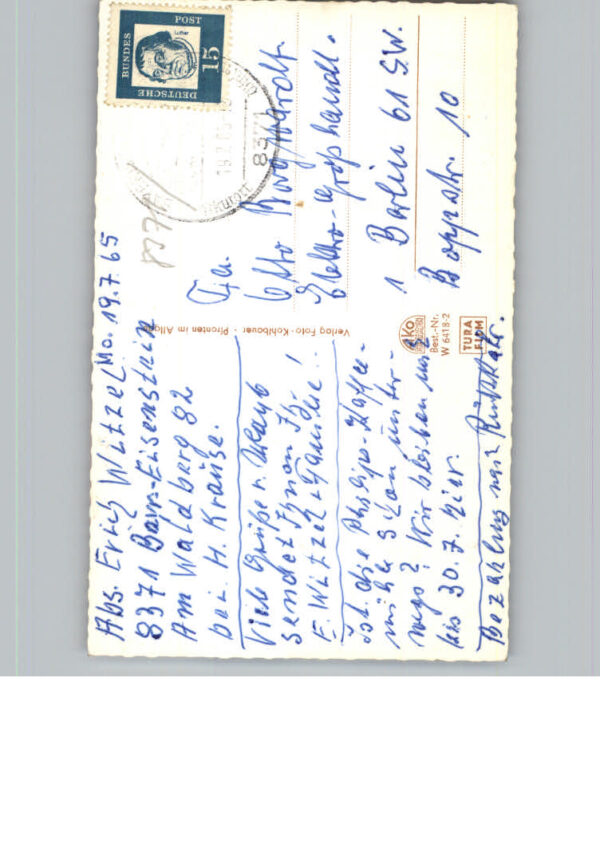 Abs. Erich Witzel Mo. 19.7.65
8371 Bayr.-Eisenstein
Am Waldberg 82
bei H. Krause.
Viele Grüße v. Urlaub
sendet Ihnen Ihr
E. Witzel + Familie!
Ist die Philips-Kaffee-
mühle schon unter-
wegs? Wir bleiben
bis 30.7. hier.
Bezahlung nach Rückkehr.
Verlag Foto-Kohlbauer · Pfronten im Allgäu
Best.-Nr.
W 6418-2
TURA
FILM
DEUTSCHE
BUNDES
POST
15
Luther
8371
Fa.
Otto Borgwardt
Elektro-Großhandl.
1 Berlin 61 S.W.
Boppstr. 10